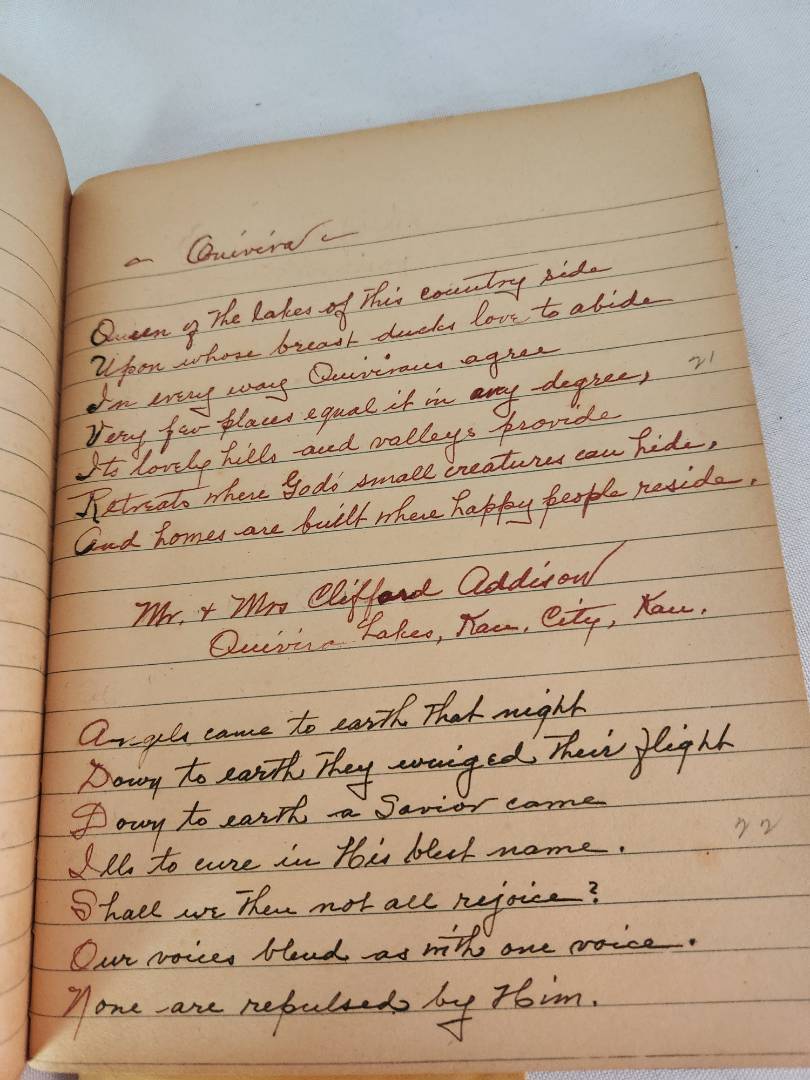 ~ Quivira ~
Queen of the lakes of this country side
Upon whose breast ducks love to abide
In every way Quivirans agree
21
Very few places equal it in any degree,
Its lovely hills and valleys provide
Retreats where God's small creatures can hide,
And homes are built where happy people reside.
Mr. & Mrs Clifford Addison
Quivira Lakes, Kan. City, Kan.
Angels came to earth that night
Down to earth they winged their flight
Down to earth a Savior came
22
Ills to cure in His blest name.
Shall we then not all rejoice?
Our voices blend as with one voice.
None are repulsed by Him.